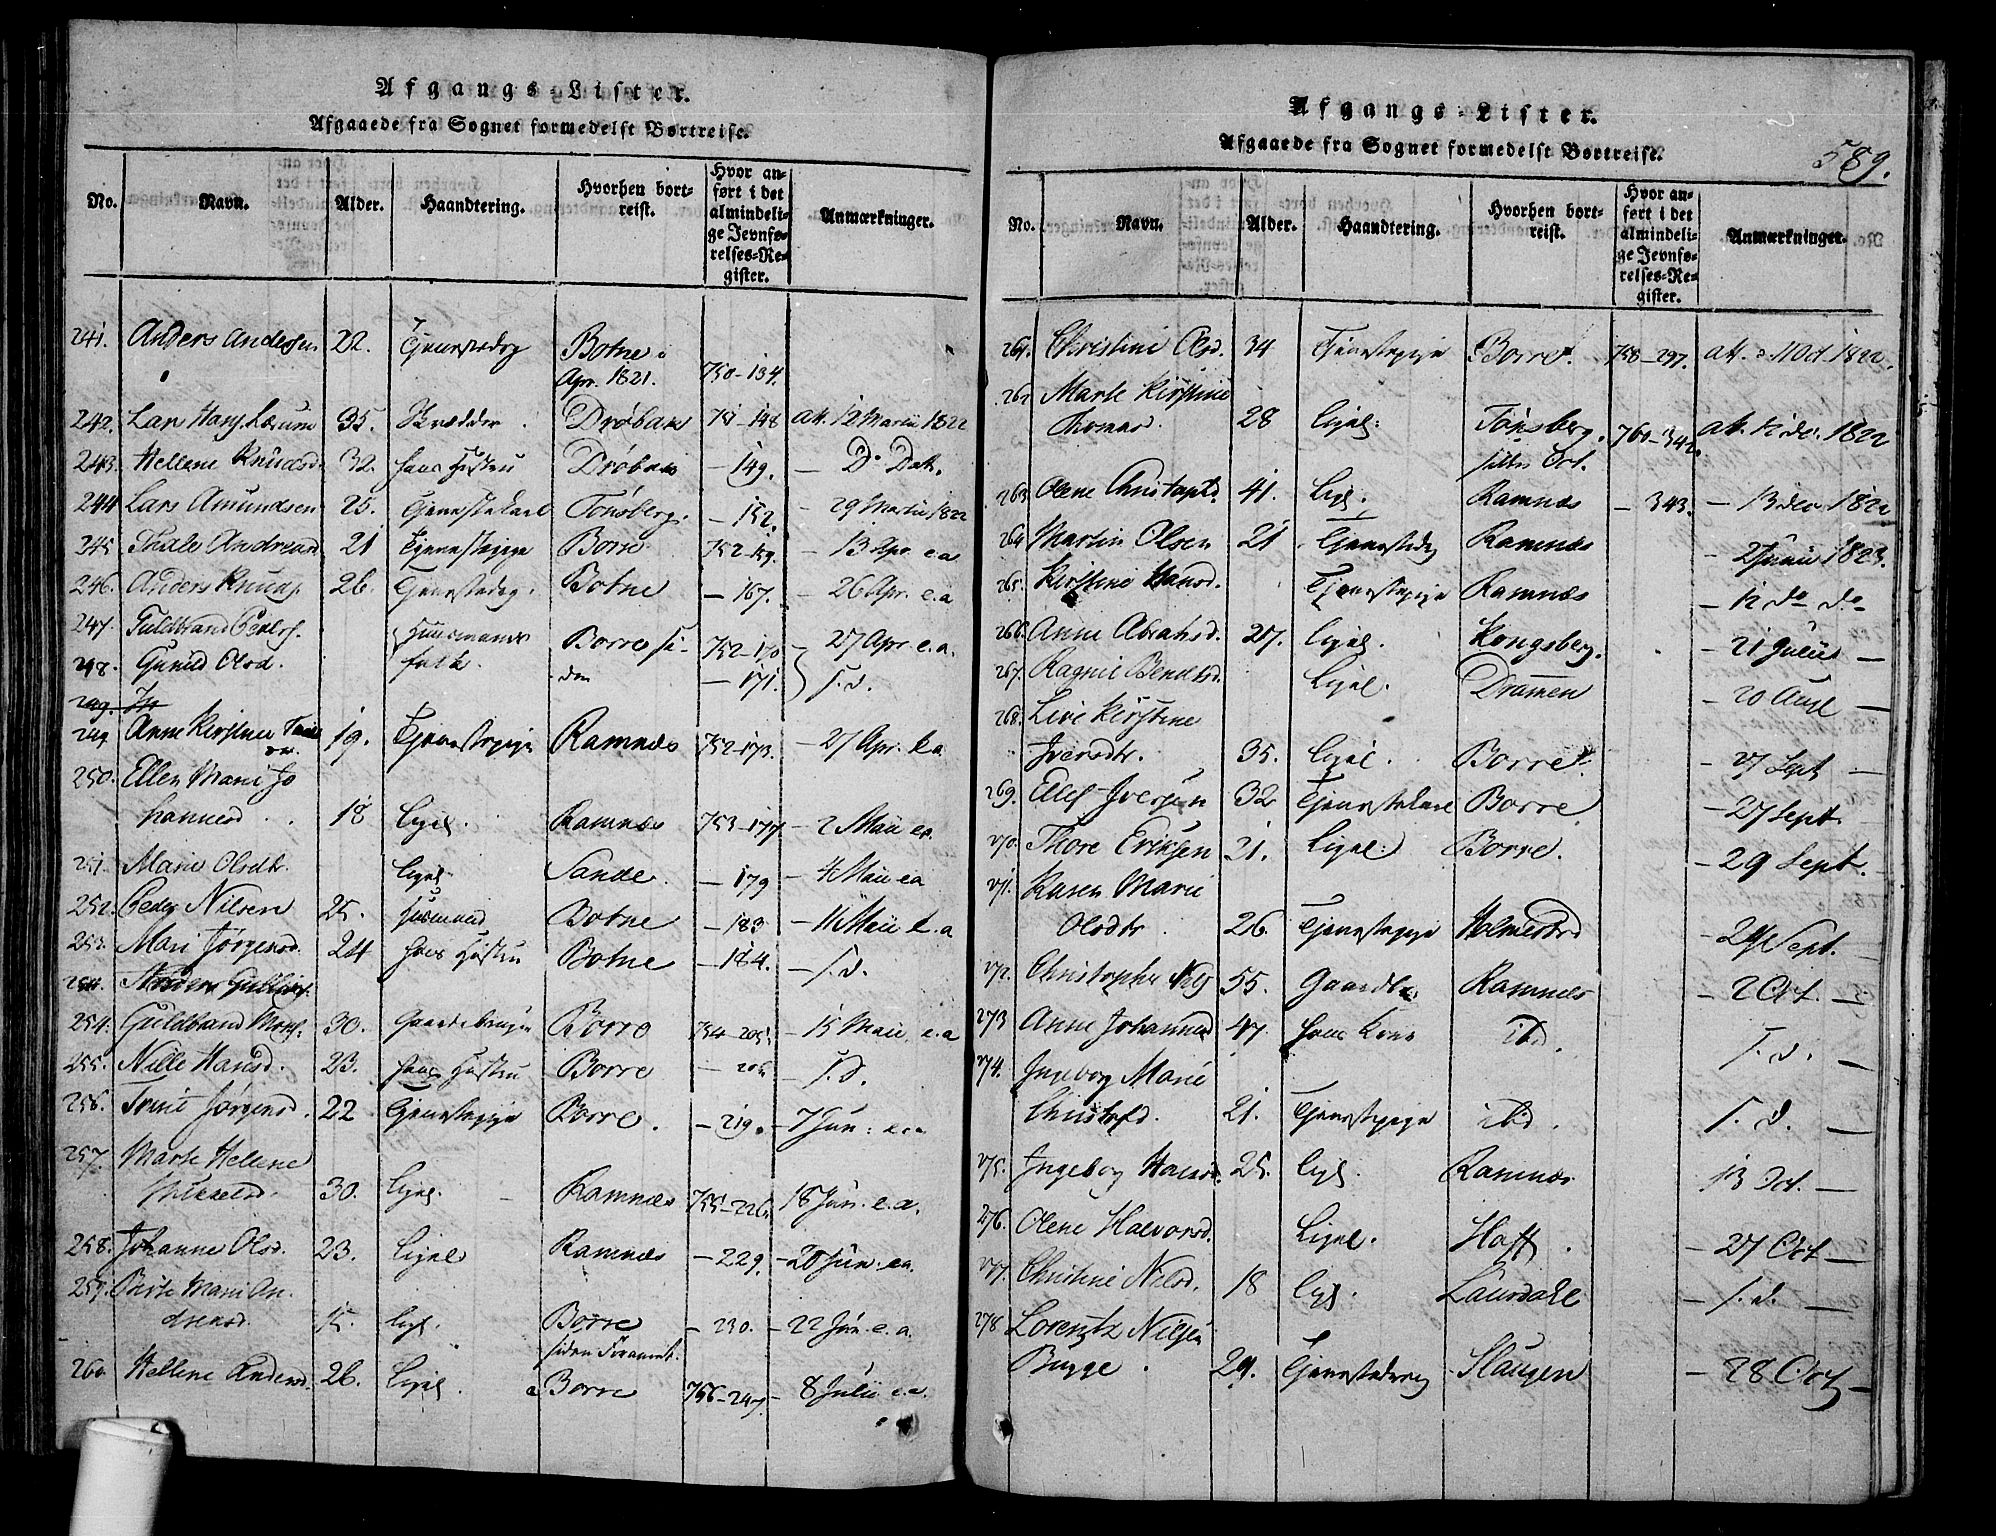 Afgangs-Lister.
Afgaaede fra Sognet formedelst Bortreise.
No. Navn. Alder. Haandtering. Hvorhen bortreist. Hvor anført i det almindelige Jevnførelses-Register. Anmærkninger.
241. Anders Andersen 22. Tjenestedrg Botne
Apr. 1821. 750-134.
242. Lars 35. Skrædder Drøbak 751-148 att. 12 Martii 1822
243. Hellene Knudsd. 32. hans Hustru Drøbak -149. - Do Dat.
244 Lars Amundsen 25. Tjenestekarl Tønsberg. -152. - 29 Martii 1822
245 Thale Andread. 21 Tjenestepige Borre 752-159. - 13 Apr. e.a
246. Anders Knuds. 26. Tjenestedrg. Botne -167. - 26 Apr. e.a
247. Guldbrand Peders. Huusmands Borre si- 752-170 27 Apr. e.a.
248. Gunild Olsd. folk. den -171. s. d.
249.
249 Anne Kirstine 19. Tjenestepige Ramnæs 752-173. - 27 Apr. e.a
250. Ellen Marie Jo
hannesd. 18 ligel. Ramnæs 753-177. - 2 Maii ea.
251. Marie Olsdtr. ligel. Sande. -179 - 4 Maii ea
252. Peder Nilsen 25. Husmand Botne -183 - 11 Maii e.a
253. Mari Jørgensd. 24 hans Hustru Botne -184. - s. d.
254. Guldbrand 30. Gaardebruger Borre 754-205. - 15 Maii e.a
255. Nille Hansd. 23. hans Hustru Borre -206. - s. d.
256. Trine Jørgensd. 22 Tjenestepige Borre. -219. - 7 Jun: e.a
257. Marte Hellene
Mikkelsd. 30. ligel. - Ramnæs 755-226. 18 Jun. e.a.
258. Johanne Olsd. 23. ligel Ramnæs -229. - 20 Jun: ea.
259. Marie An
dreasd. 15. ligl. Borre -230. - 22 Jun. e.a.
siden
260 Hellene Andersd. 26. ligel. Borre 756-247. - 8 Julii e.a.
Afgangs-Lister.
Afgaaede fra Sognet formedelst Bortreise.
589.
No. Navn. Alder. Haandtering. Hvorhen bortreist. Hvor anført i det almindelige Jevnførelses-Register. Anmærkninger.
261. Christine Olsd. 34 Tjenestepige Borre. 758-297. att. 1822
262 Marte Kirstine
Thomasd. 28 ligel: Tønsberg. 760-342. att. 12 dec. 1822
263 Olene Christophd. 41. ligl. Ramnæs -343. - 13 dec 1822
264 Martin Olsen 21 Tjenestedrg Ramnæs - 2 Junii 1823.
265. Kirstine Hansd. Tjenestepige Ramnæs - 12 do do
266. Anne Abrahsd. 27. ligel. Kongsberg. - 21 Julii -
267. Ragnil Bendtsd. ligel. Dramen - 20 -
268. Live Kirstine
Iversdtr. 35. ligel. Borre. - 27 Sept -
269. Ellef Iversen 32 Tjenestekarl Borre - 27 Sept.
270. Thore Eriksen 21. Ligel: Borre. - 29 Sept.
271. Karen Marie
Olsdtr 26. Tjenestepige Holmestrd - 24 Sept.
272. Christopher Nils 55. Gaardbr Ramnæs - 2 Oct. -
273 Anne Johannesd 47. hans Kone ibd. s. d. -
274. Ingeborg Marie
Christofd. 21. Tjenestepige ibd. s. d. -
275. Ingeborg 25. ligl. Ramnæs 13 Oct. -
276. Olene Halvorsd. ligel. Hoff. - 27 Oct -
277. Christine Nilsd. 18 ligl. Laurdahl - s. d. -
278 Lorentz Nilsen
Bugge. 29. Tjenestedreng Slaugen - 28 Oct -